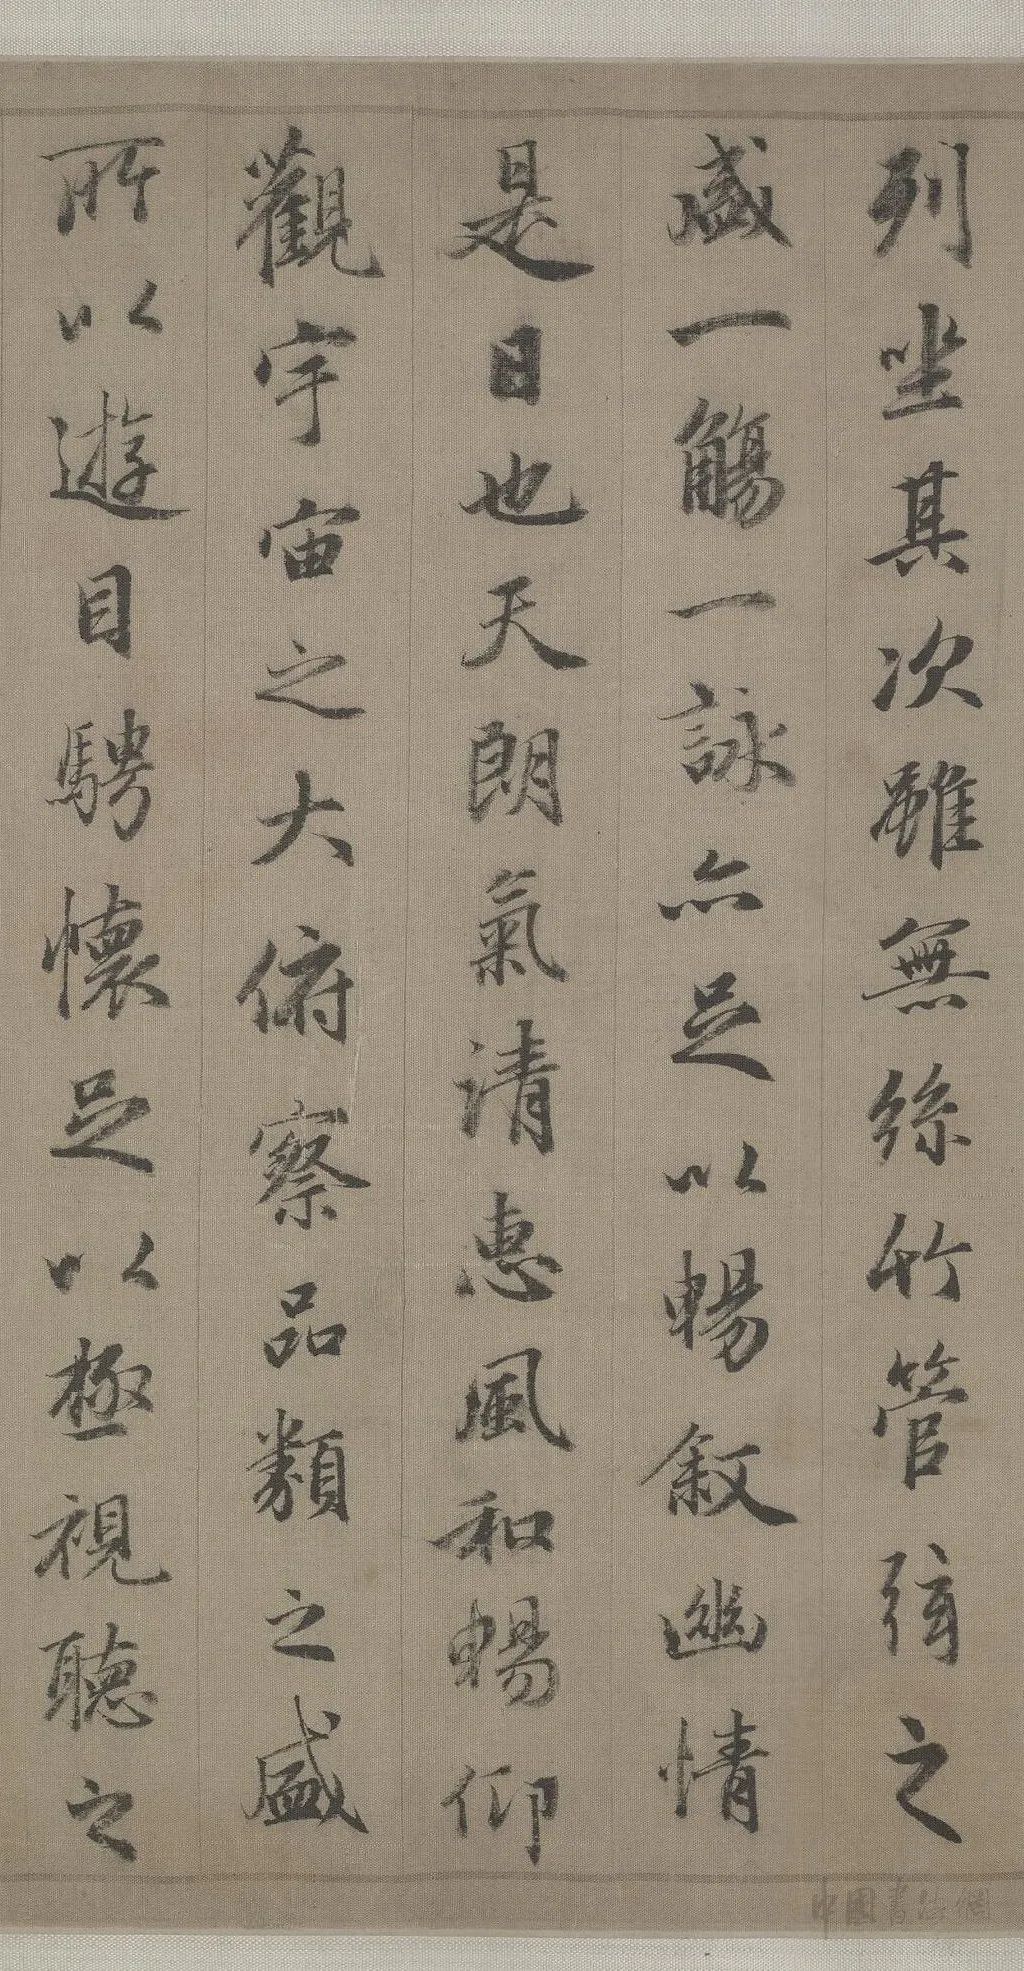 列坐其次雖無絲竹管弦之
盛一觴一詠亦足以暢敘幽情
是日也天朗氣清惠風和暢仰
觀宇宙之大俯察品類之盛
所以遊目騁懷足以極視聽之
中国书法网